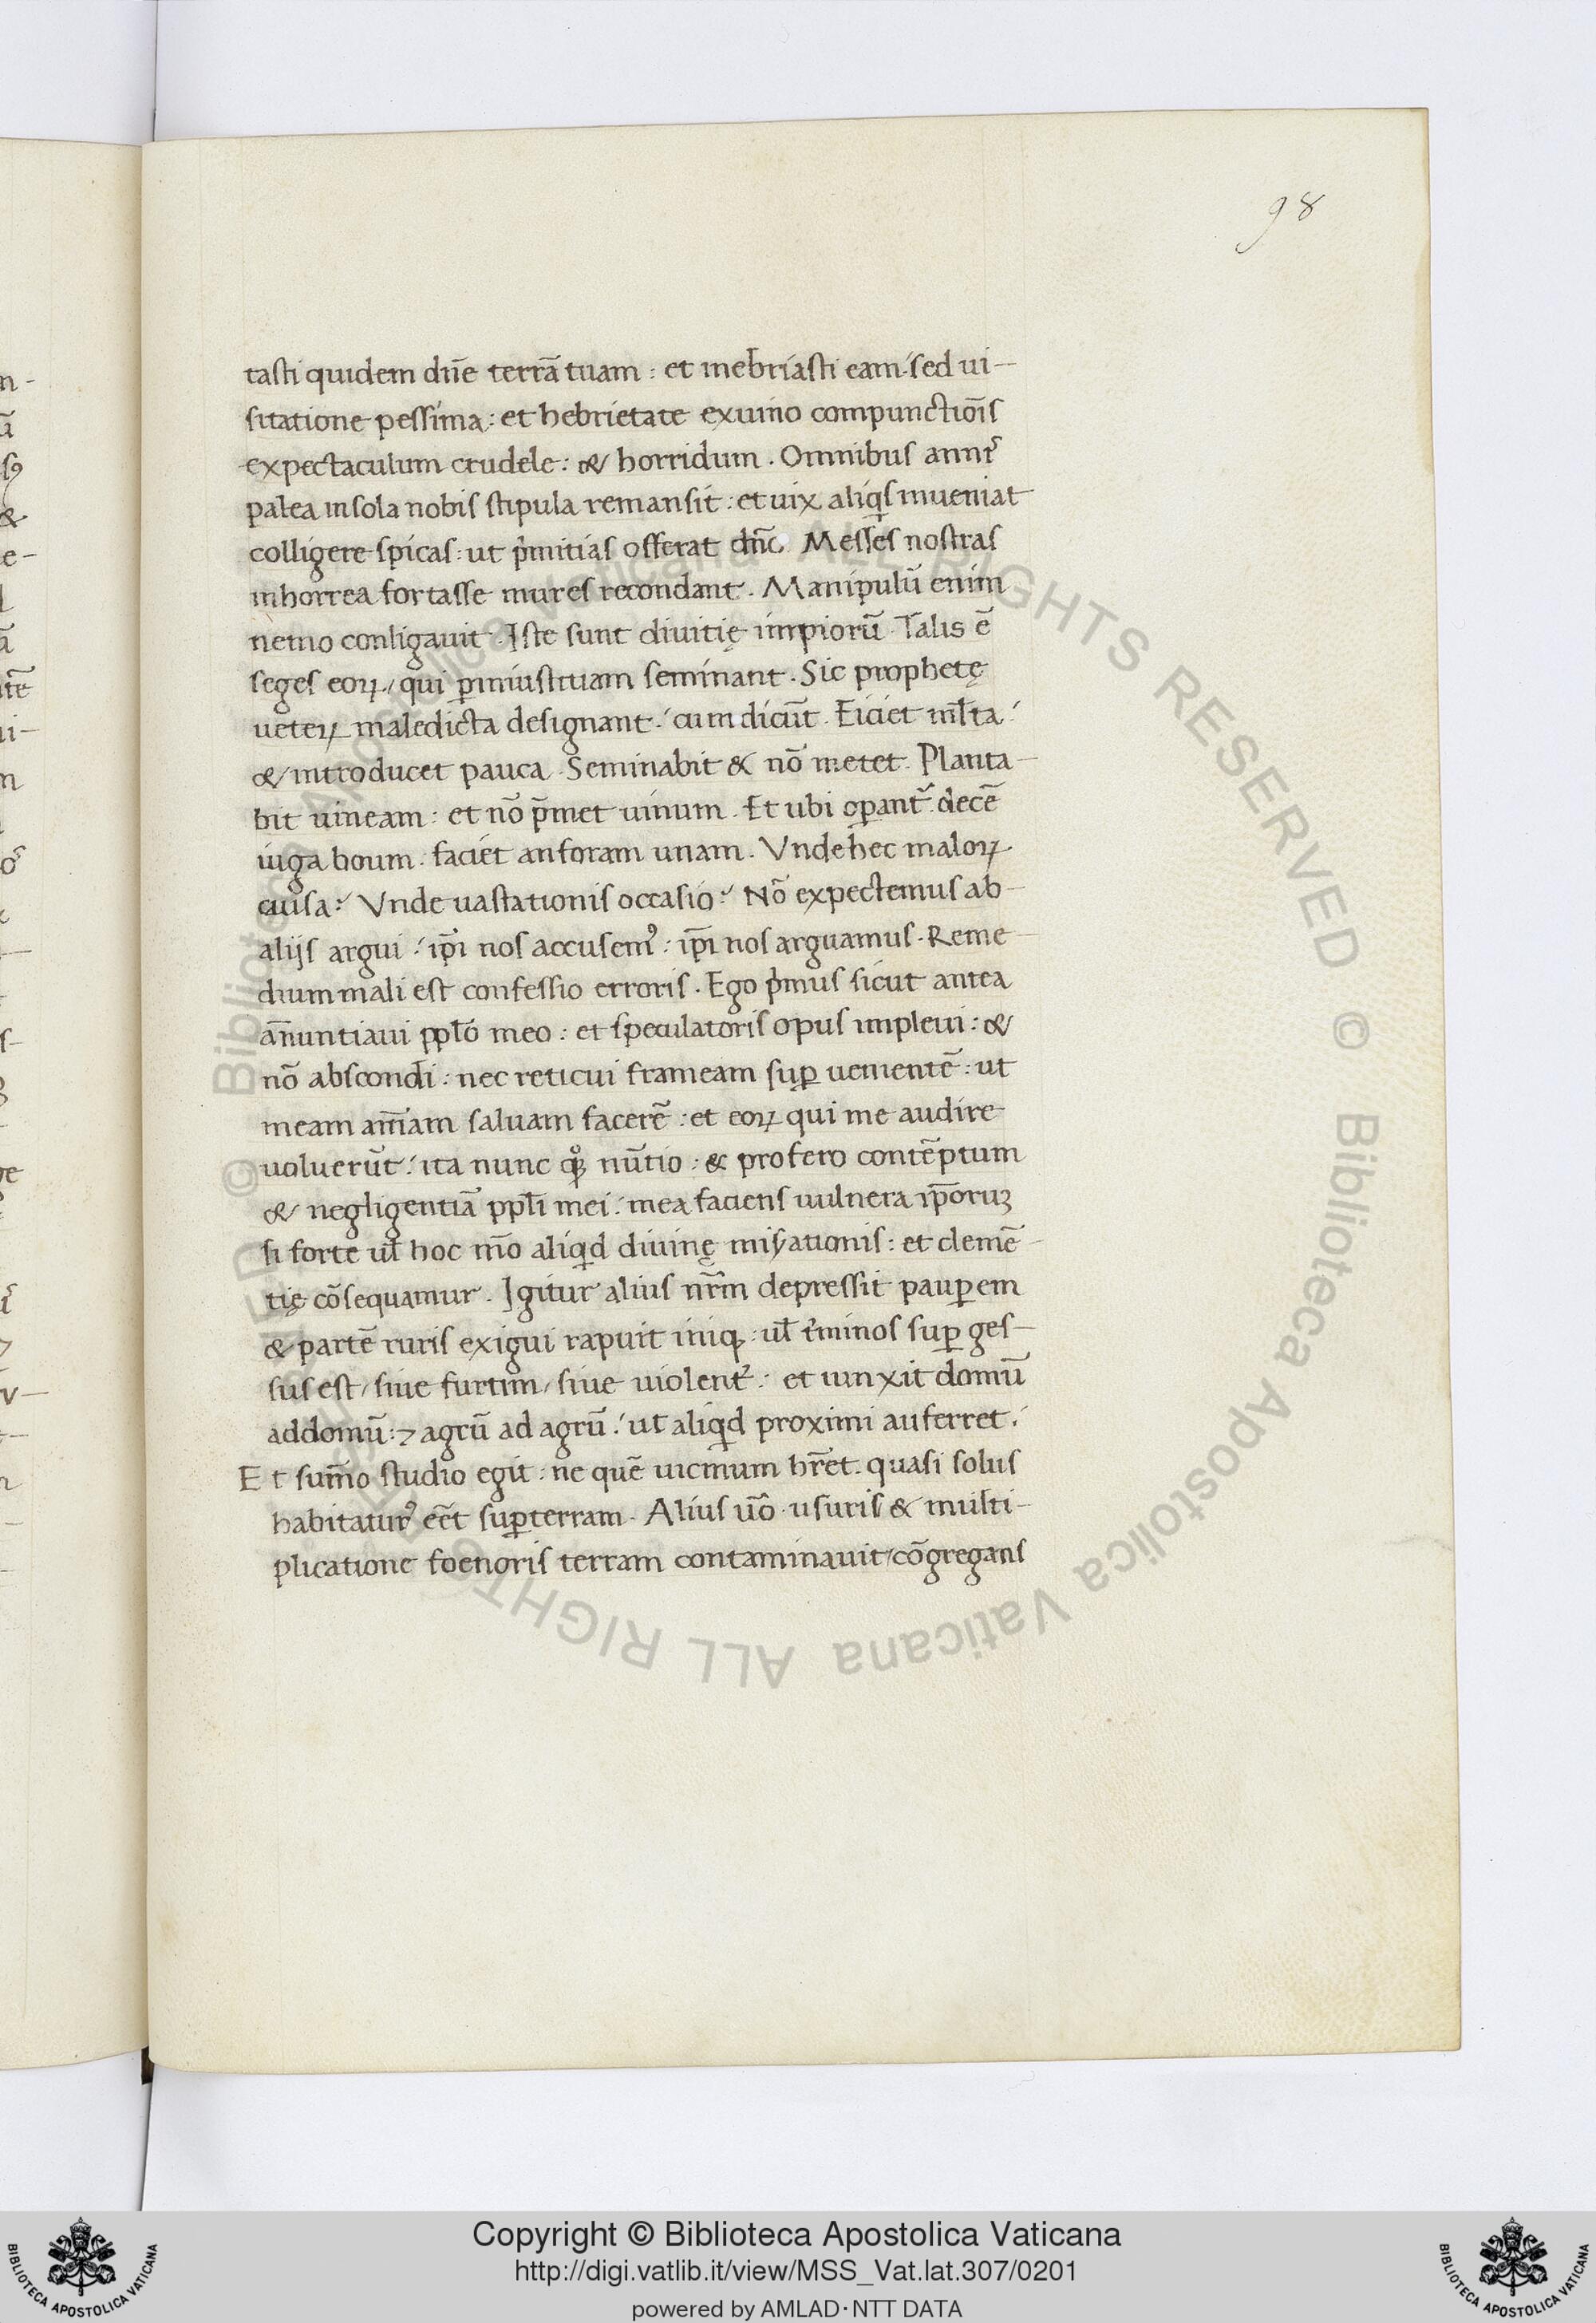 98
tasti quidem dn̄e terrā tuam : et inebriasti eam : sed ui-
sitatione pessima : et hebrietate ex uino compunctiōis
expectaculum crudele : & horridum . Omnibus annis
palea in sola nobis stipula remansit : et uix aliqis inueniat
colligere spicas : ut pimitias offerat dn̄o Messes nostras
in horrea fortasse mures recondant . Manipulū enim
nemo conligauit . Iste sunt diuitię impiorū . Talis ē
seges eoꝝ / qui ꝑ iniustitiam seminant . Sic prophetę
ueteꝝ maledicta designant : cum dicūt . Eiciet ml̄ta :
& introducet pauca . Seminabit & nō metet . Planta-
bit uineam : et nō p̄met uinum . Et ubi oꝑant̄ decē
iuga boum . faciet anforam unam . Vnde hec maloꝝ
causa : Vnde uastationis occasio : Nō expectemus ab-
alijs argui : ip̄i nos accusemꝰ : ip̄i nos arguamus . Reme-
dium mali est confessio erroris . Ego pimus sicut antea
an̄untiaui ppl̄o meo : et speculatoris opus impleui : &
nō abscondi : nec reticui frameam suꝑ uenientē : ut
meam am̄am saluam facerē : et eoꝝ qui me audire
uoluerūt : ita nunc qꝫ nūtio : & profero contēptum
& negligentiā ppl̄i mei : mea faciens uulnera ip̄oruꝫ
si forte ul̄ hoc m̄o aliqid diuinę misationis : et clemē-
tię cōsequamur . Igitur alius nr̄m depressit pauꝑem
& partē ruris exigui rapuit iniq : ul̄ tminos suꝑ ges-
sus est / siue furtim / siue uiolent̄ : et iunxit domū
ad domū : 7 agrū ad agrū : ut aliqid proximi auferret :
Et sum̄o studio egit : ne quē uicinum hr̄et . quasi solus
habitaturꝰ eēt suꝑ terram . Alius uō usuris & multi-
plicatione foenoris terram contaminauit / cōgregans
Copyright © Biblioteca Apostolica Vaticana
http://digi.vatlib.it/view/MSS_Vat.lat.307/0201
powered by AMLAD·NTT DATA